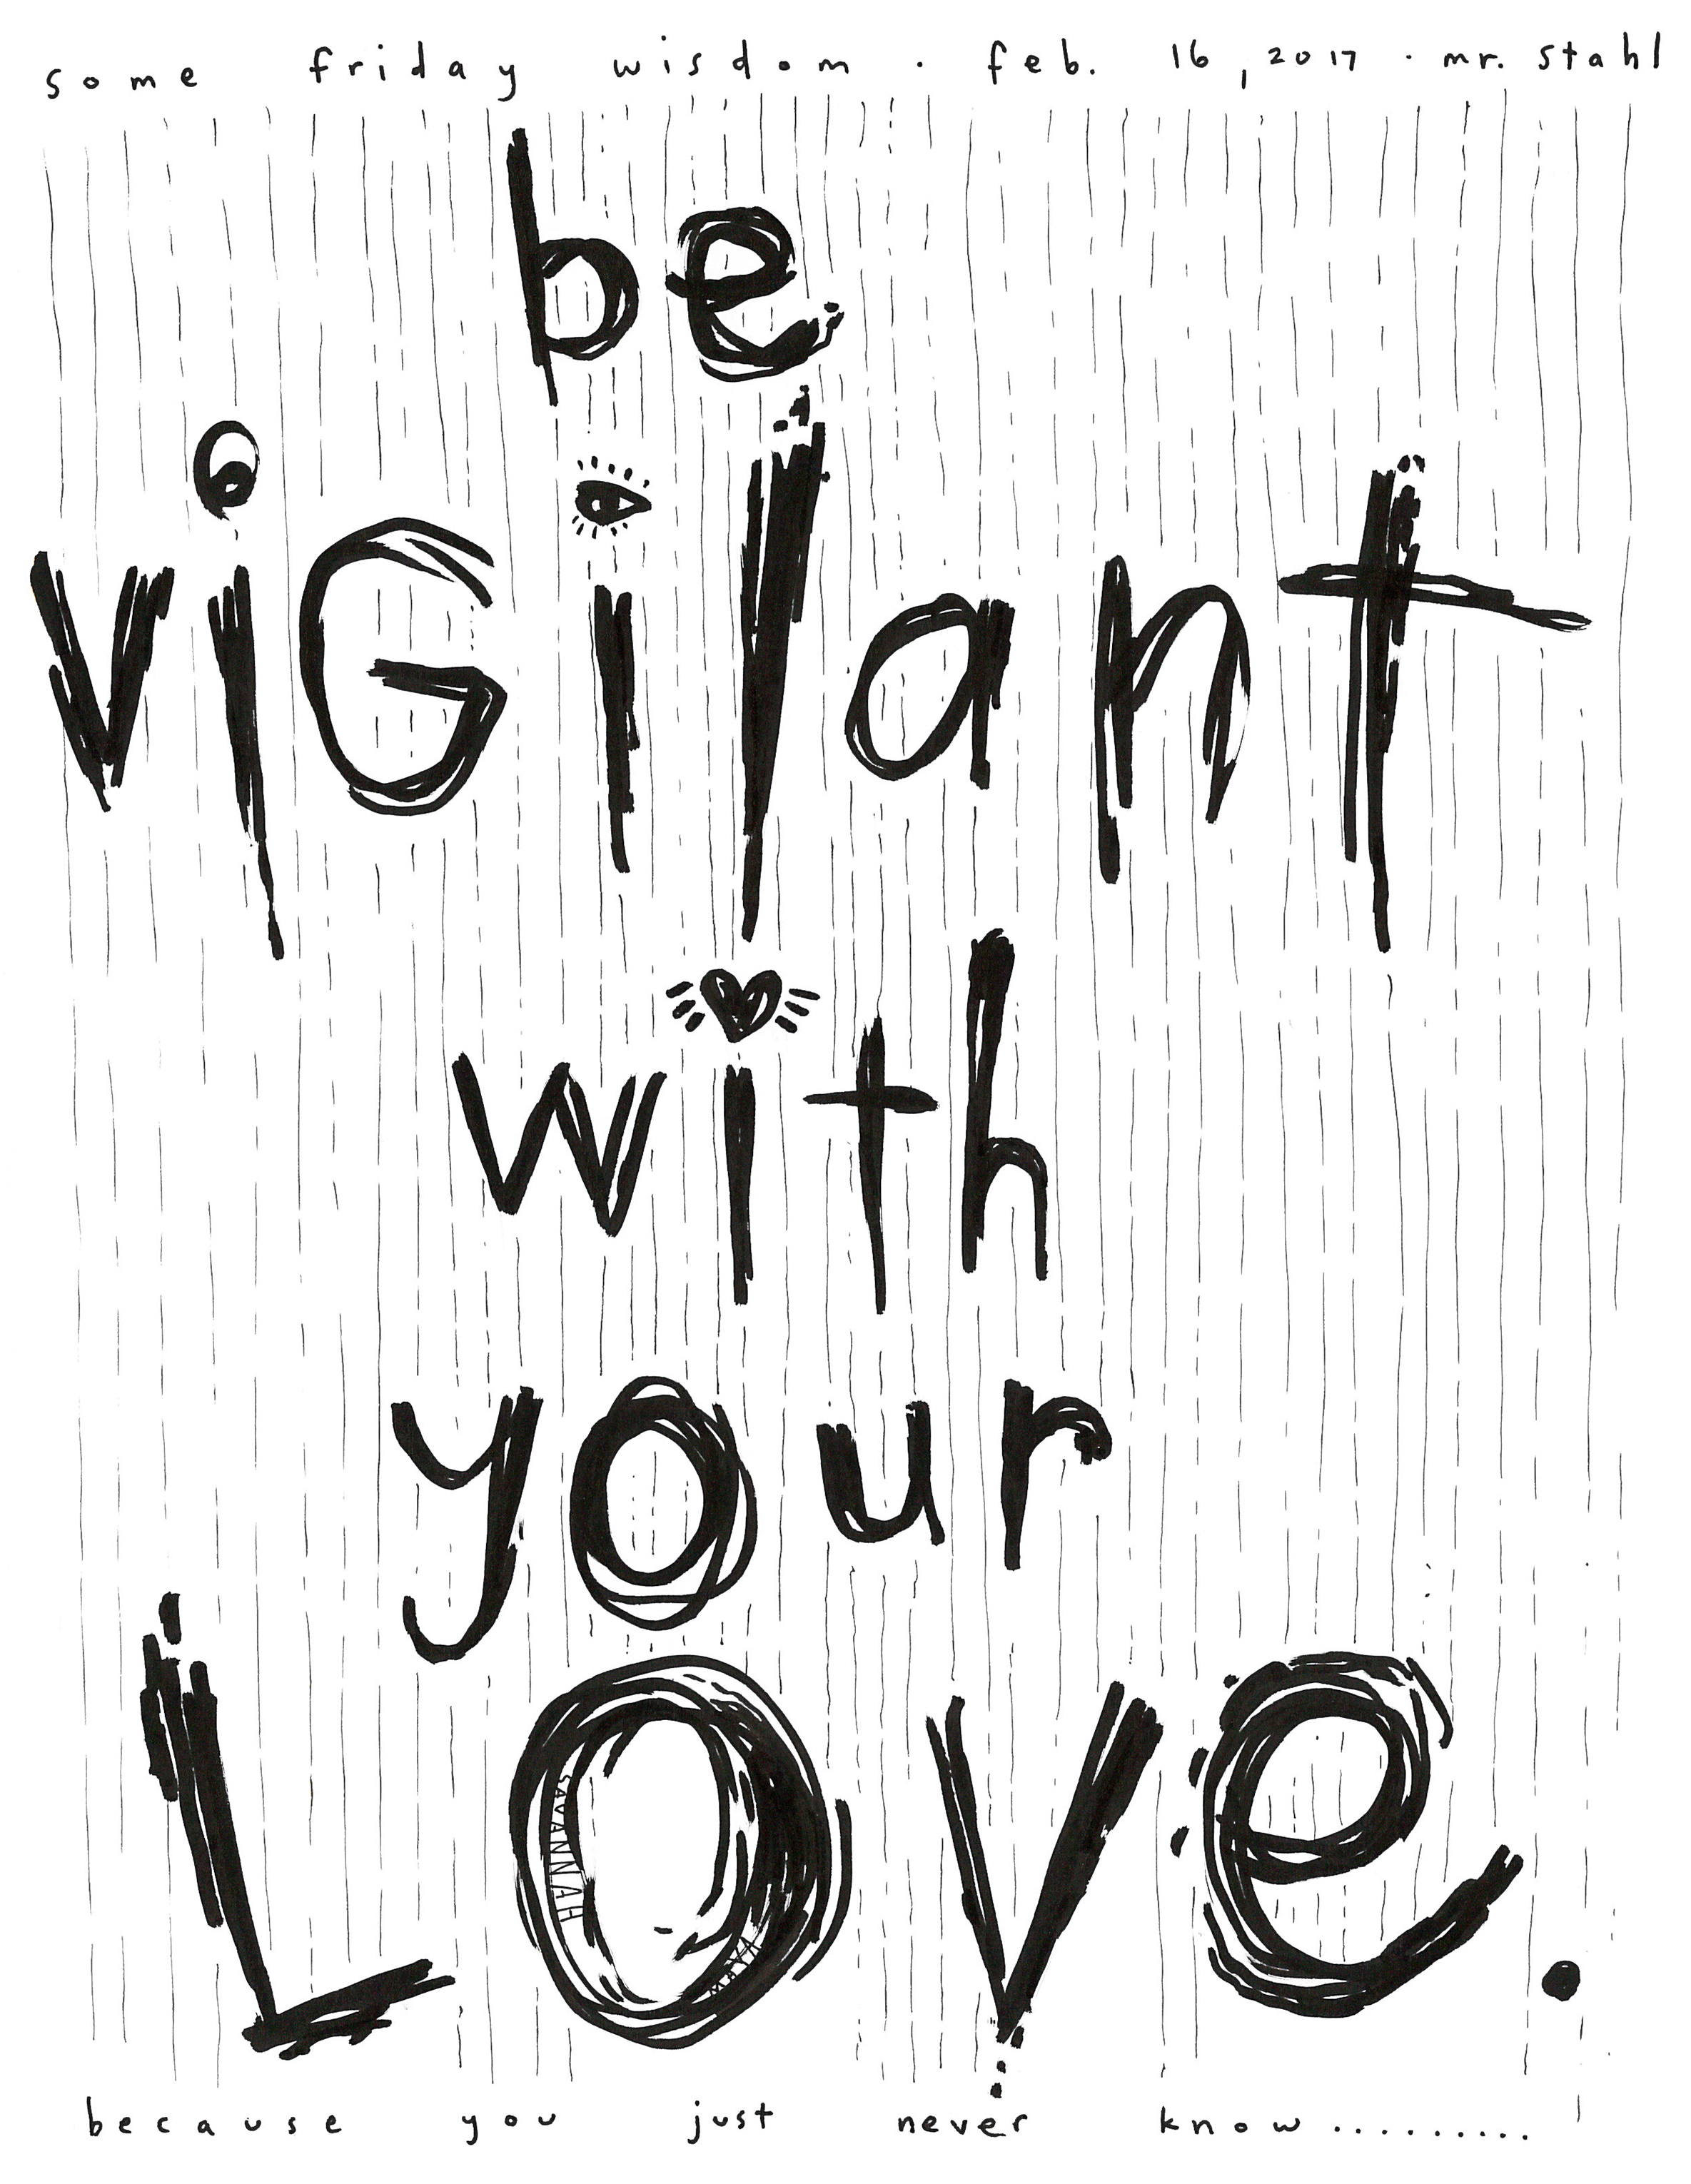 some friday wisdom · feb. 16, 2017 · mr. stahl
be
viGilant
with
your
LOve.
SAVANNAH
because you just never know..........